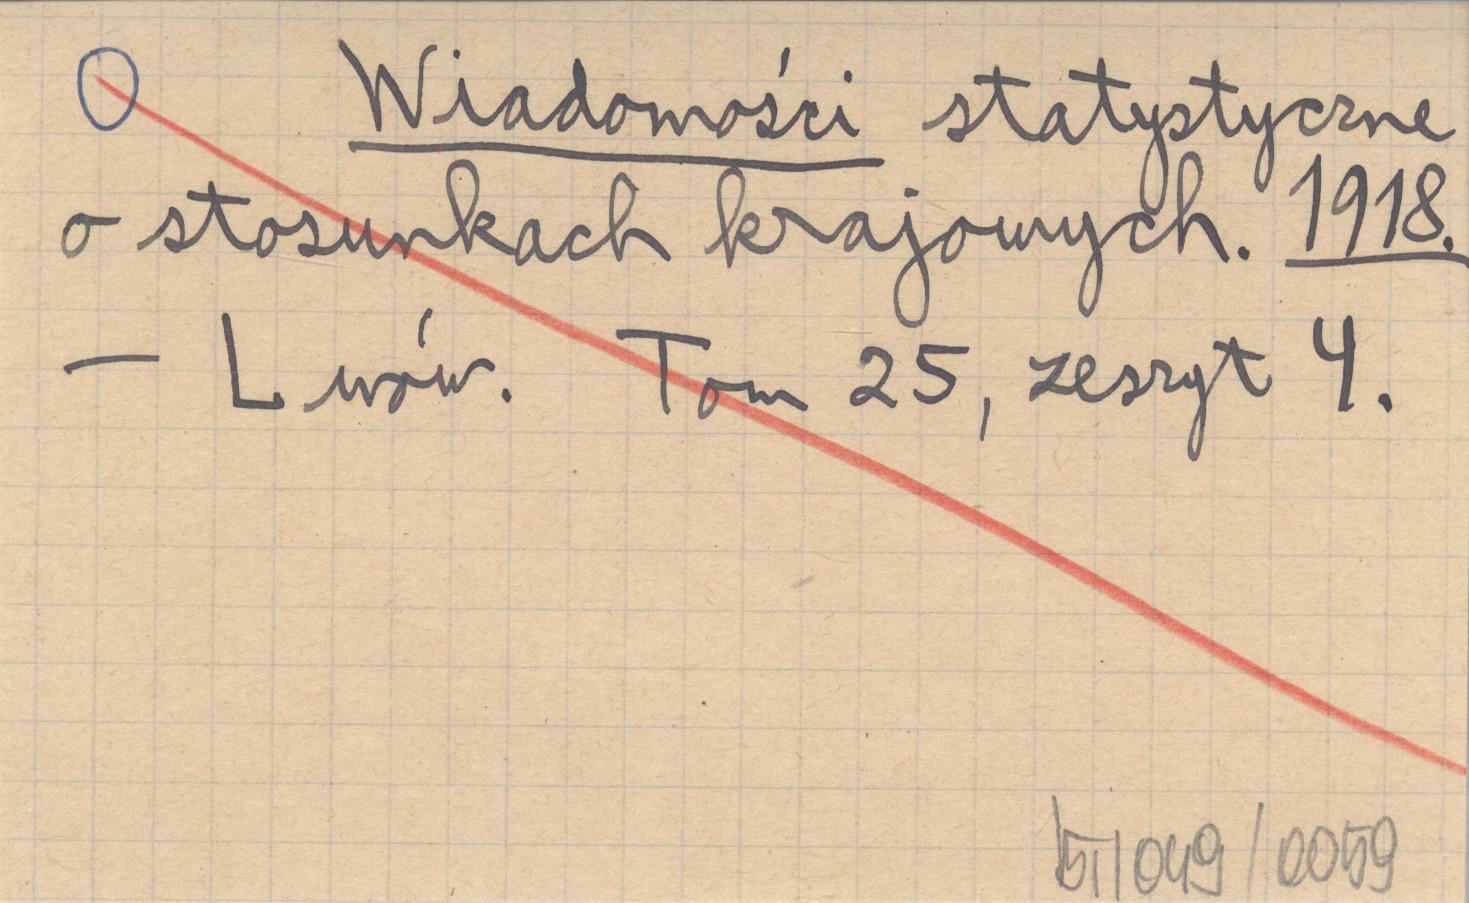 Wiadomości statystyczne
o stosunkach krajowych. 1918.
— Lwów. Tom 25, zeszyt 4.
/049/0059